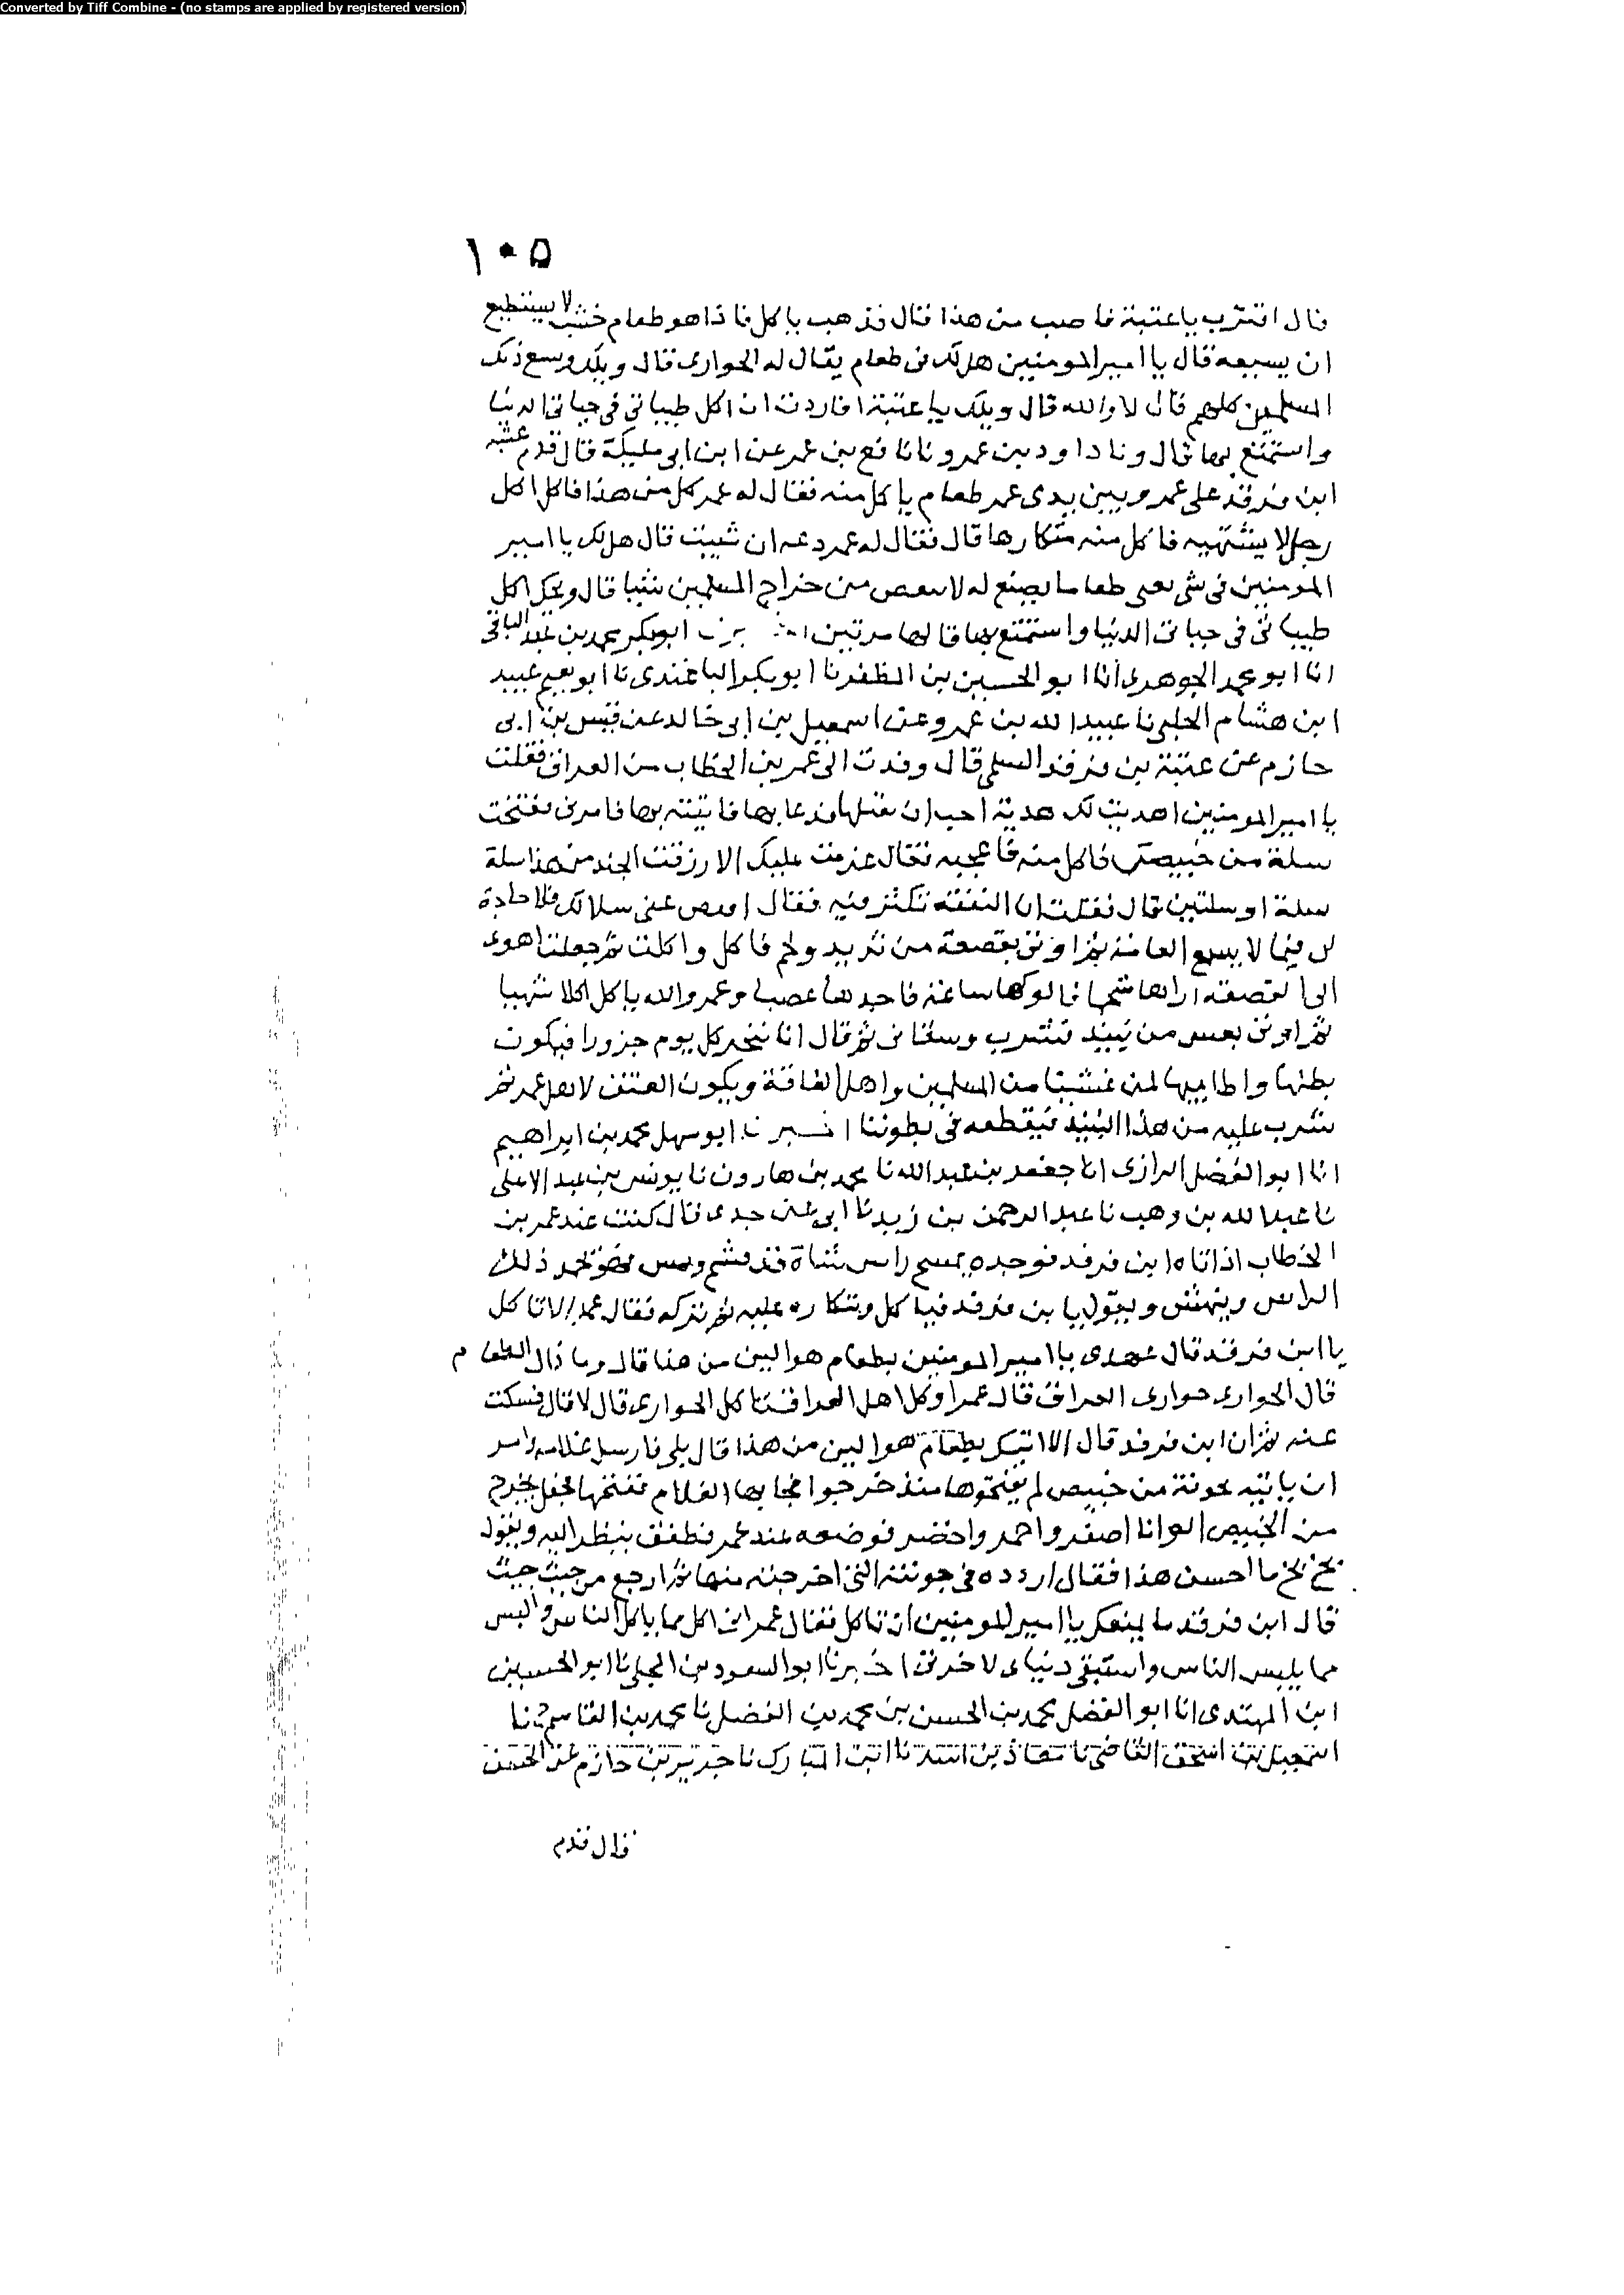 Converted by Tiff Combine - (no stamps are applied by registered version)
١٠٥
قال اقترب يا عتبة فاصب من هذا قال فذهب ياكل فاذا هو طعام خشب لا يستطيع
ان يسيعه قال يا امير المومنين هل لك فى طعام يقال له الحوارى قال ويلك ويسع ذلك
المسلمين كلهم قال لا والله قال ويلك يا عتبة افاردت ان اكل طيباتى فى حياتى الدنيا
واستمتع بها قال ونا داود بن عمرو نا نافع بن عمر عن ابن ابى مليكة قال قدم عتبه
ابن فرقد على عمر وبين يدى عمر طعام ياكل منه فقال له عمر كل من هذا فاكل اكل
رجل لا يشتهيه فاكل منه متكارها قال فقال له عمر دعه ان شيت قال هل لك يا امير
المومنين فى شى يعى طعاما يصنع له لا ينقص من خراج المسلمين شيا قال ويحك اكل
طيباتى فى حياتى الدنيا واستمتع بها قالها مرتين ابو بكر محمد بن عبد الباقى
انا ابو محمد الجوهرى انا ابو الحسين بن المظفر نا ابو بكر الباغندى نا ابو نعيم عبيد
ابن هشام الحلبى نا عبيد الله بن عمرو عن اسمعيل بن ابى خالد عن قيس بن ابى
حازم عن عتبة بن فرقد السلمى قال وفدت الى عمر بن الخطاب من العراق فقلت
يا امير المومنين اهديت لك هدية احب ان تقبلها فدعا بها فاتيته بها فامرنى ففتحت
سلة من خبيص فاكل منه فاعجبه فقال عزمت عليك الا رزقت الجند من هذا سلة
سلة او سلتين قال فقلت ان النفقة تكثر فيه فقال اقبض عنى سلالك فلا حاجة
لى فيما لا يسع العامة ثم اوتى بقصعة من ثريد ولحم فاكل واكلت ثم جعلت اهوى
الى القصعة اراها شحما فالوكها ساعة فاجدها عصبا وعمر والله ياكل اكلا شهيا
ثم اوتى بعس من نبيذ فشرب وسقانى ثم قال انا ننحر كل يوم جزورا فيكون
بطنها واطايبها لمن غشينا من المسلمين واهل الفاقة ويكون العنق لال عمر ثم
نشرب عليه من هذا النبيذ فيقطعه فى بطوننا اخبرنا ابو سهل محمد بن ابراهيم
انا ابو الفضل الرازى انا جعفر بن عبد الله نا محمد بن هارون نا يونس بن عبد الاعلى
نا عبد الله بن وهب نا عبد الرحمن بن زيد نا ابى عن جدى قال كنت عند عمر بن
الخطاب اذ اتاه ابن فرقد فوجده يمسح راس شاة ذلك
الراس وينهش ويقول يا بن فرقد فياكل ويتكاره عليه ثم تركه فقال عمر الا تاكل
يا ابن فرقد قال عهدى يا امير المومنين بطعام هو الين من هذا قال وما ذاك الطعام
قال الحوارى حوارى العراق قال عمر اوكل اهل العراق تاكل الحوارى قال لا قال فسكت
عنه ثم ان ابن فرقد قال الا اتيك بطعام هو الين من هذا قال بلى فارسل غلامه وامر
ان ياتيه بجونة من خبيص لم يفتحوها منذ خرجوا فجا بها الغلام ففتحها فجعل يخرج
من الخبيص الوانا اصفر واحمر واخضر فوضعه عند عمر فطفق ينظر اليه ويقول
بخ بخ ما احسن هذا فقال اردده فى جونته التى اخرجته منها ثم ارجع من حيث جيت
قال ابن فرقد ما يمنعك يا امير المومنين ان تاكل فقال عمر انى اكل مما ياكل الناس والبس
مما يلبس الناس واستبقى دنياى لاخرتى اخبرنا ابو السعود بن المجلى نا ابو الحسين
ابن المهتدى انا ابو الفضل محمد بن الحسن بن محمد بن الفضل نا محمد بن القاسم نا
اسمعيل بن اسحق القاضى نا معاذ بن اسد نا ابن المبارك نا جرير بن حازم عن الحسن
قال قدم